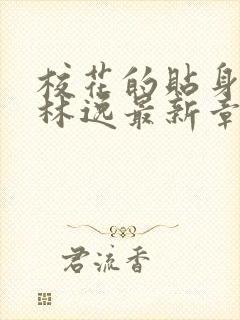 校花的贴身
林逸最新章
君流香